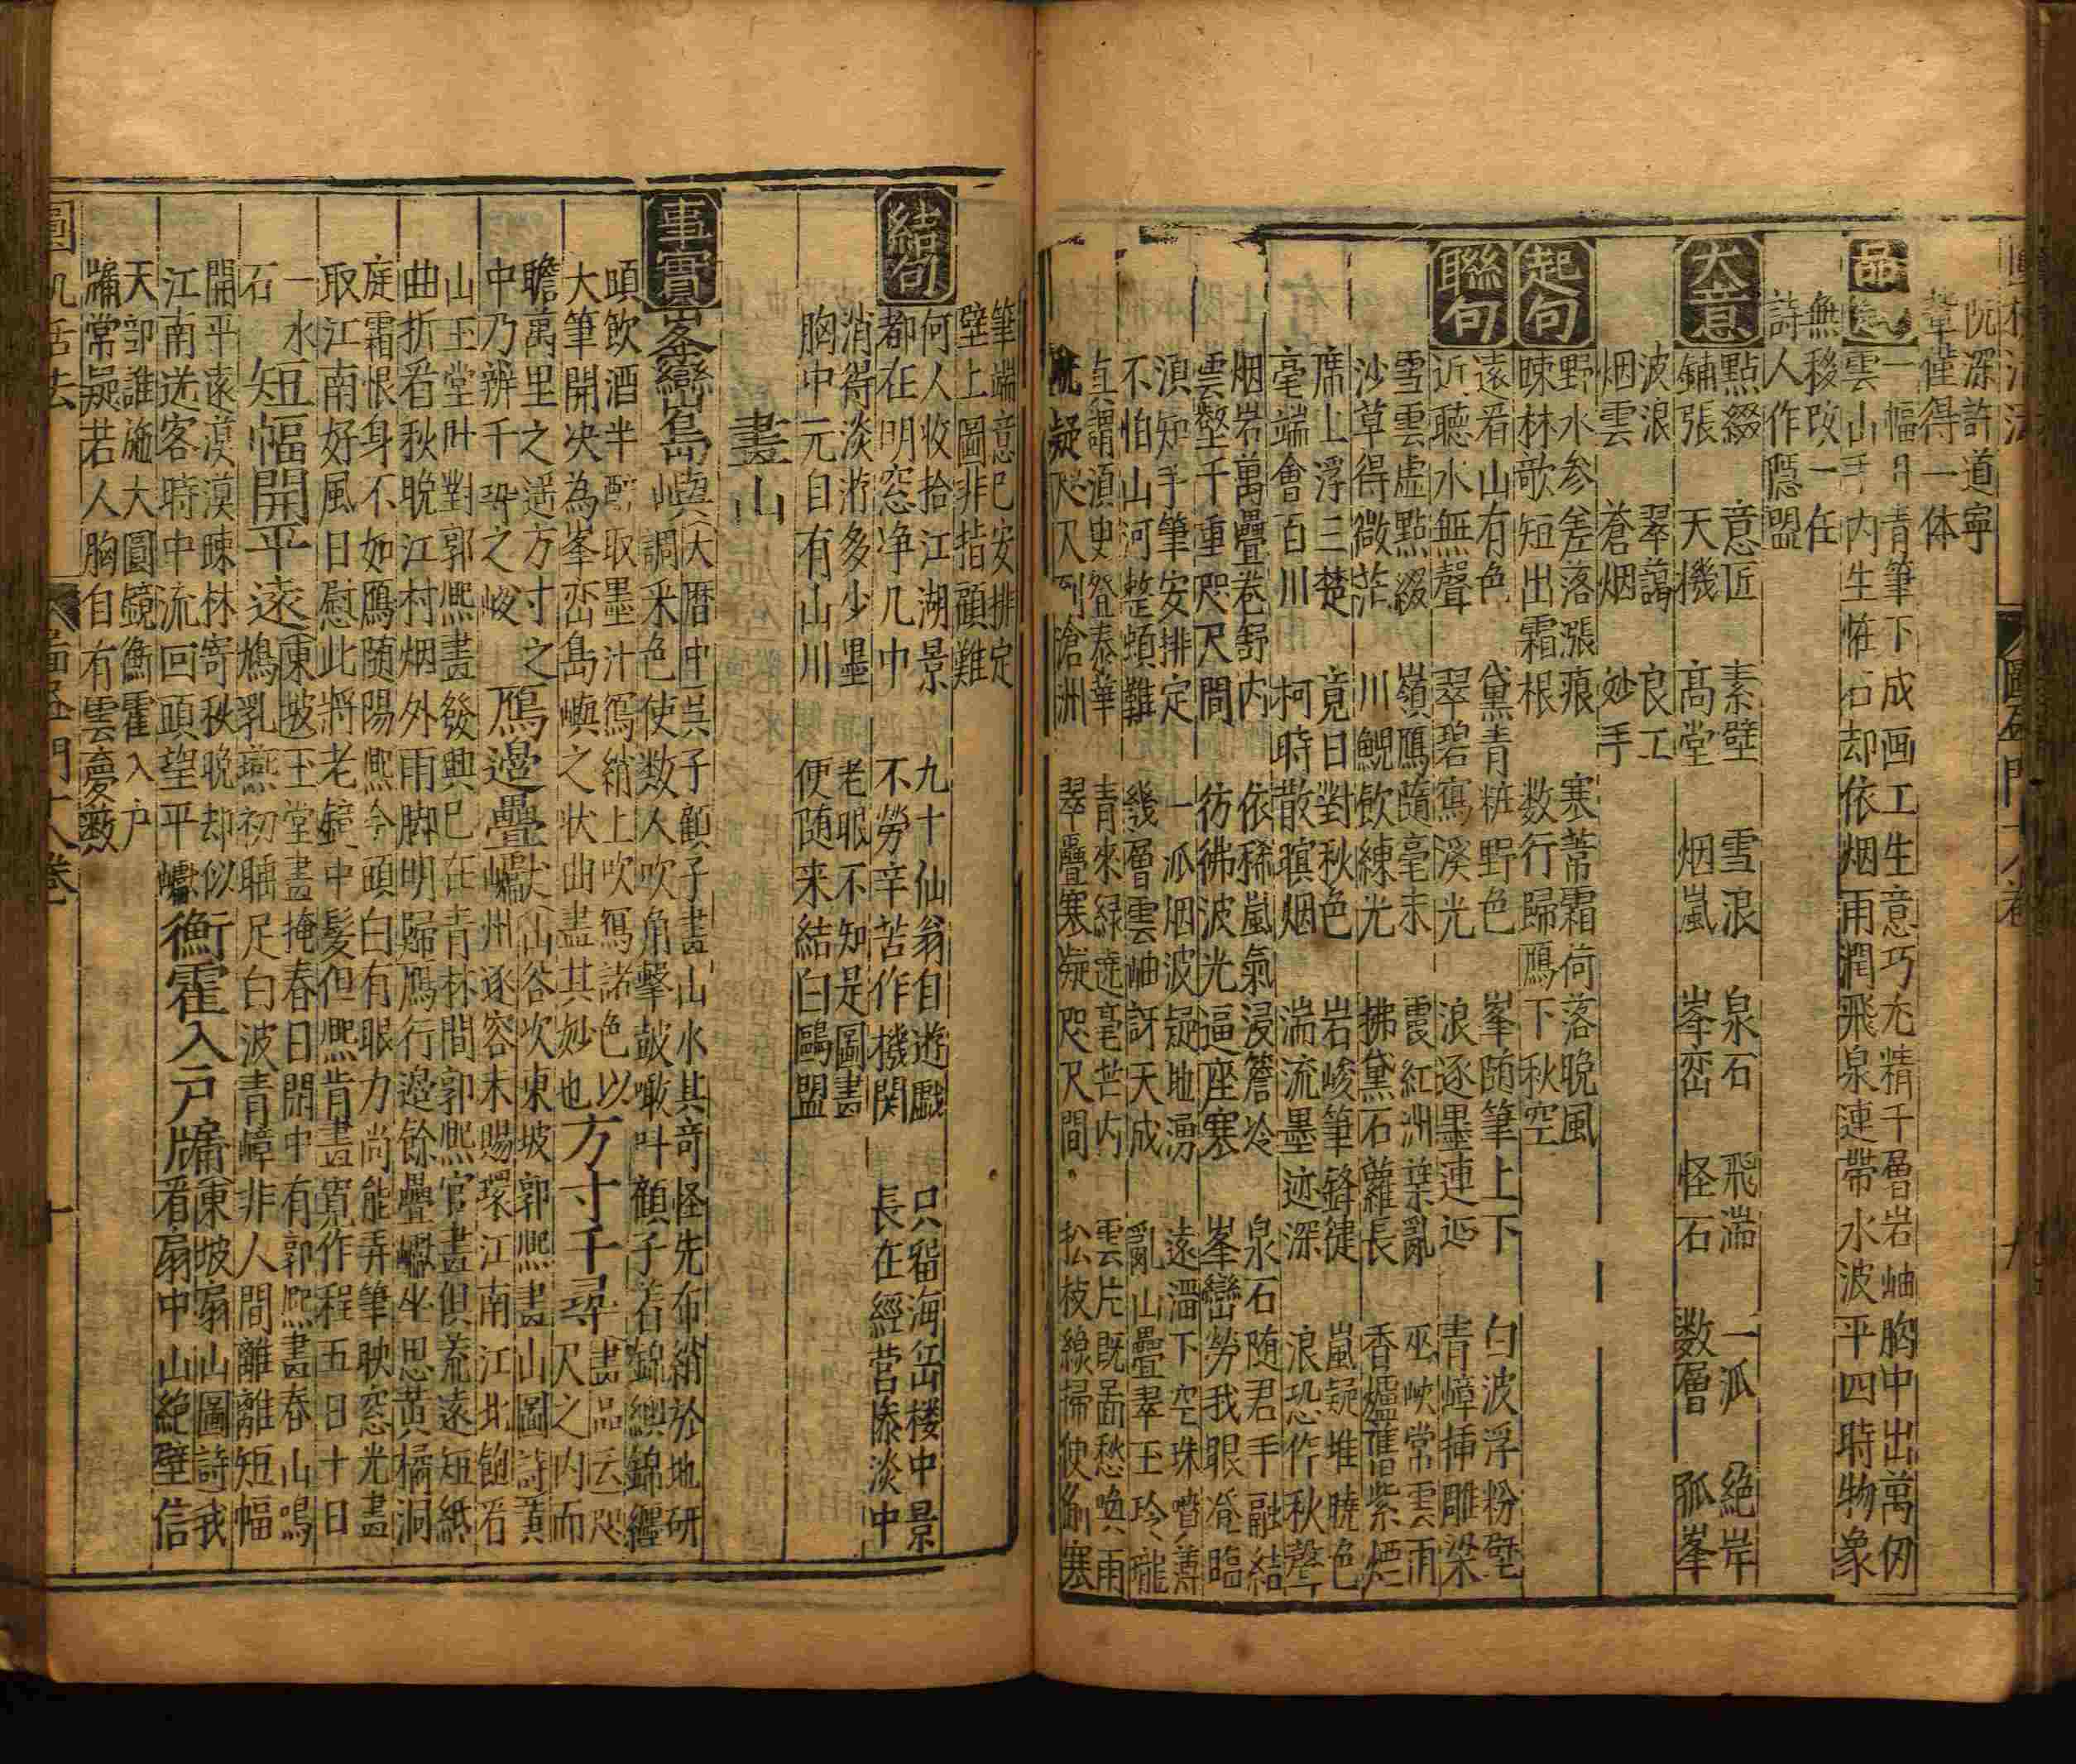 阮深許道寧
輩僅得一体
品題
一幅丹青筆下成画工生意巧尤精千層岩岫胸中出萬仞
雲山手内生惟石却依烟雨潤飛泉連帶水波平四時物象
無移改一任
詩人作隱盟
大意
點綴 意匠 素壁 雪浪 泉石 飛湍 一派 絶岸
鋪張 天機 高堂 烟嵐 峯巒 怪石 数層 孤峯
波浪 翠藹 良工
烟雲 蒼烟 妙手
起句
野水参差落漲痕 寒葦霜荷落晚風
踈林欹短出霜根 数行歸鴈下秋空
聯句
遠看山有色 黛青粧野色 峯随筆上下 白波浮粉壁
近聽水無聲 翠碧寫溪光 浪逐墨連延 青嶂揷雕梁
雪雲虚點綴 嶺鴈隨毫末 震紅洲葉亂 巫峽常雲雨
沙草得微茫 川鯢飲練光 拂黛石蘿長 香爐舊紫煙
席上浮三楚 竟日對秋色 岩峻筆鋒徤 嵐疑堆曉色
毫端會百川 柯時散暝烟 湍流墨迹深 浪恐作秋聲
烟岩萬疊巻舒内 依稀嵐氣浸簷冷 泉石随君手融結
雲壑千重咫尺間 彷彿波光逼座寒 峯巒勞我眼登臨
湏知手筆安排定 一派烟波疑地湧 遠溜下空珠噴薄
不怕山河整頓難 幾層雲岫訝天成 亂山疊翠玉玲瓏
真謂湏史登泰華 青來緑遶毫芒内 雲片既畐愁喚雨
既疑咫尺到滄洲 翠疊寒凝咫尺間 松枝線掃使禽寒
筆端意已安排定
壁上圖非指顧難
結句
何人收拾江湖景 九十仙翁自遊戯 只留海岳楼中景
都在明窓净几中 不勞辛苦作機関 長在經营慘淡中
消得淡滸多少墨 老眼不知是圖畫
胸中元自有山川 便随来結白鷗盟
畫山
事實
峯巒島嶼
大暦中吳子顧子畫山水其竒怪先布綃於地研
調采色使数人吹角擊皷噉呌顧子着錦襖錦纏
頭飲酒半酣取墨汁寫綃上吹寫諸色以
大筆開决為峯巒島嶼之状曲盡其妙也
方寸千尋
畫品云咫
尺之内而
瞻萬里之遥方寸之
中乃辨千尋之峻
鴈邉疊巘
山谷次東坡郭熙畫山圖詩黄
州逐客未賜環江南江北飽看
山玉堂卧對郭熙畫發興已在青林間郭熙官畫但荒遠短紙
曲折看秋晚江村烟外雨脚明歸鴈行邉餘疊巘坐思黄橘洞
庭霜恨身不如鴈随陽熙今頭白有眼力尚能弄筆映窓光畫
取江南好風日慰此將老鏡中髮但熙肯畫寛作程五日十日
一水
石
短幅開平遠
東坡玉堂畫掩春日閑中有郭熙畫春山鳴
鳩乳燕初聴足白波青嶂非人間離離短幅
開平遠漠漠踈林寄秋晚却似
江南送客時中流回頭望平巘
衡霍入戸牖
東坡扇山圖詩我
看扇中山絶壁信
天部誰施大圓鏡衡霍入户
牖常疑若人胸自有雲夢薮